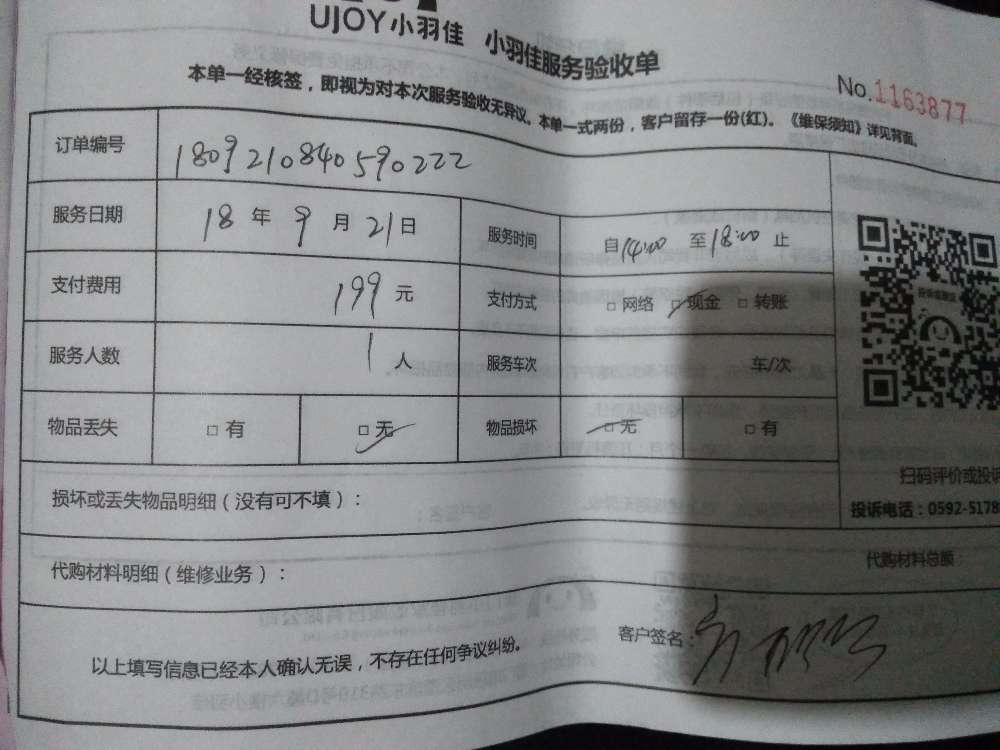 UJOY小羽佳 小羽佳服务验收单
No.1163877
本单一经核签，即视为对本次服务验收无异议。本单一式两份，客户留存一份(红)。《维保须知》详见背面。
订单编号 1809210840590222
服务日期 18 年 9 月 21 日 服务时间 自14:00 至18:00 止
支付费用 199 元 支付方式 □ 网络 □ 现金 □ 转账
服务人数 1 人 服务车次 车/次
物品丢失 □ 有 □ 无 物品损坏 □ 无 □ 有
扫码评价或投诉
损坏或丢失物品明细（没有可不填）：
投诉电话：0592-5178
代购材料明细（维修业务）： 代购材料总额
以上填写信息已经本人确认无误，不存在任何争议纠纷。 客户签名：